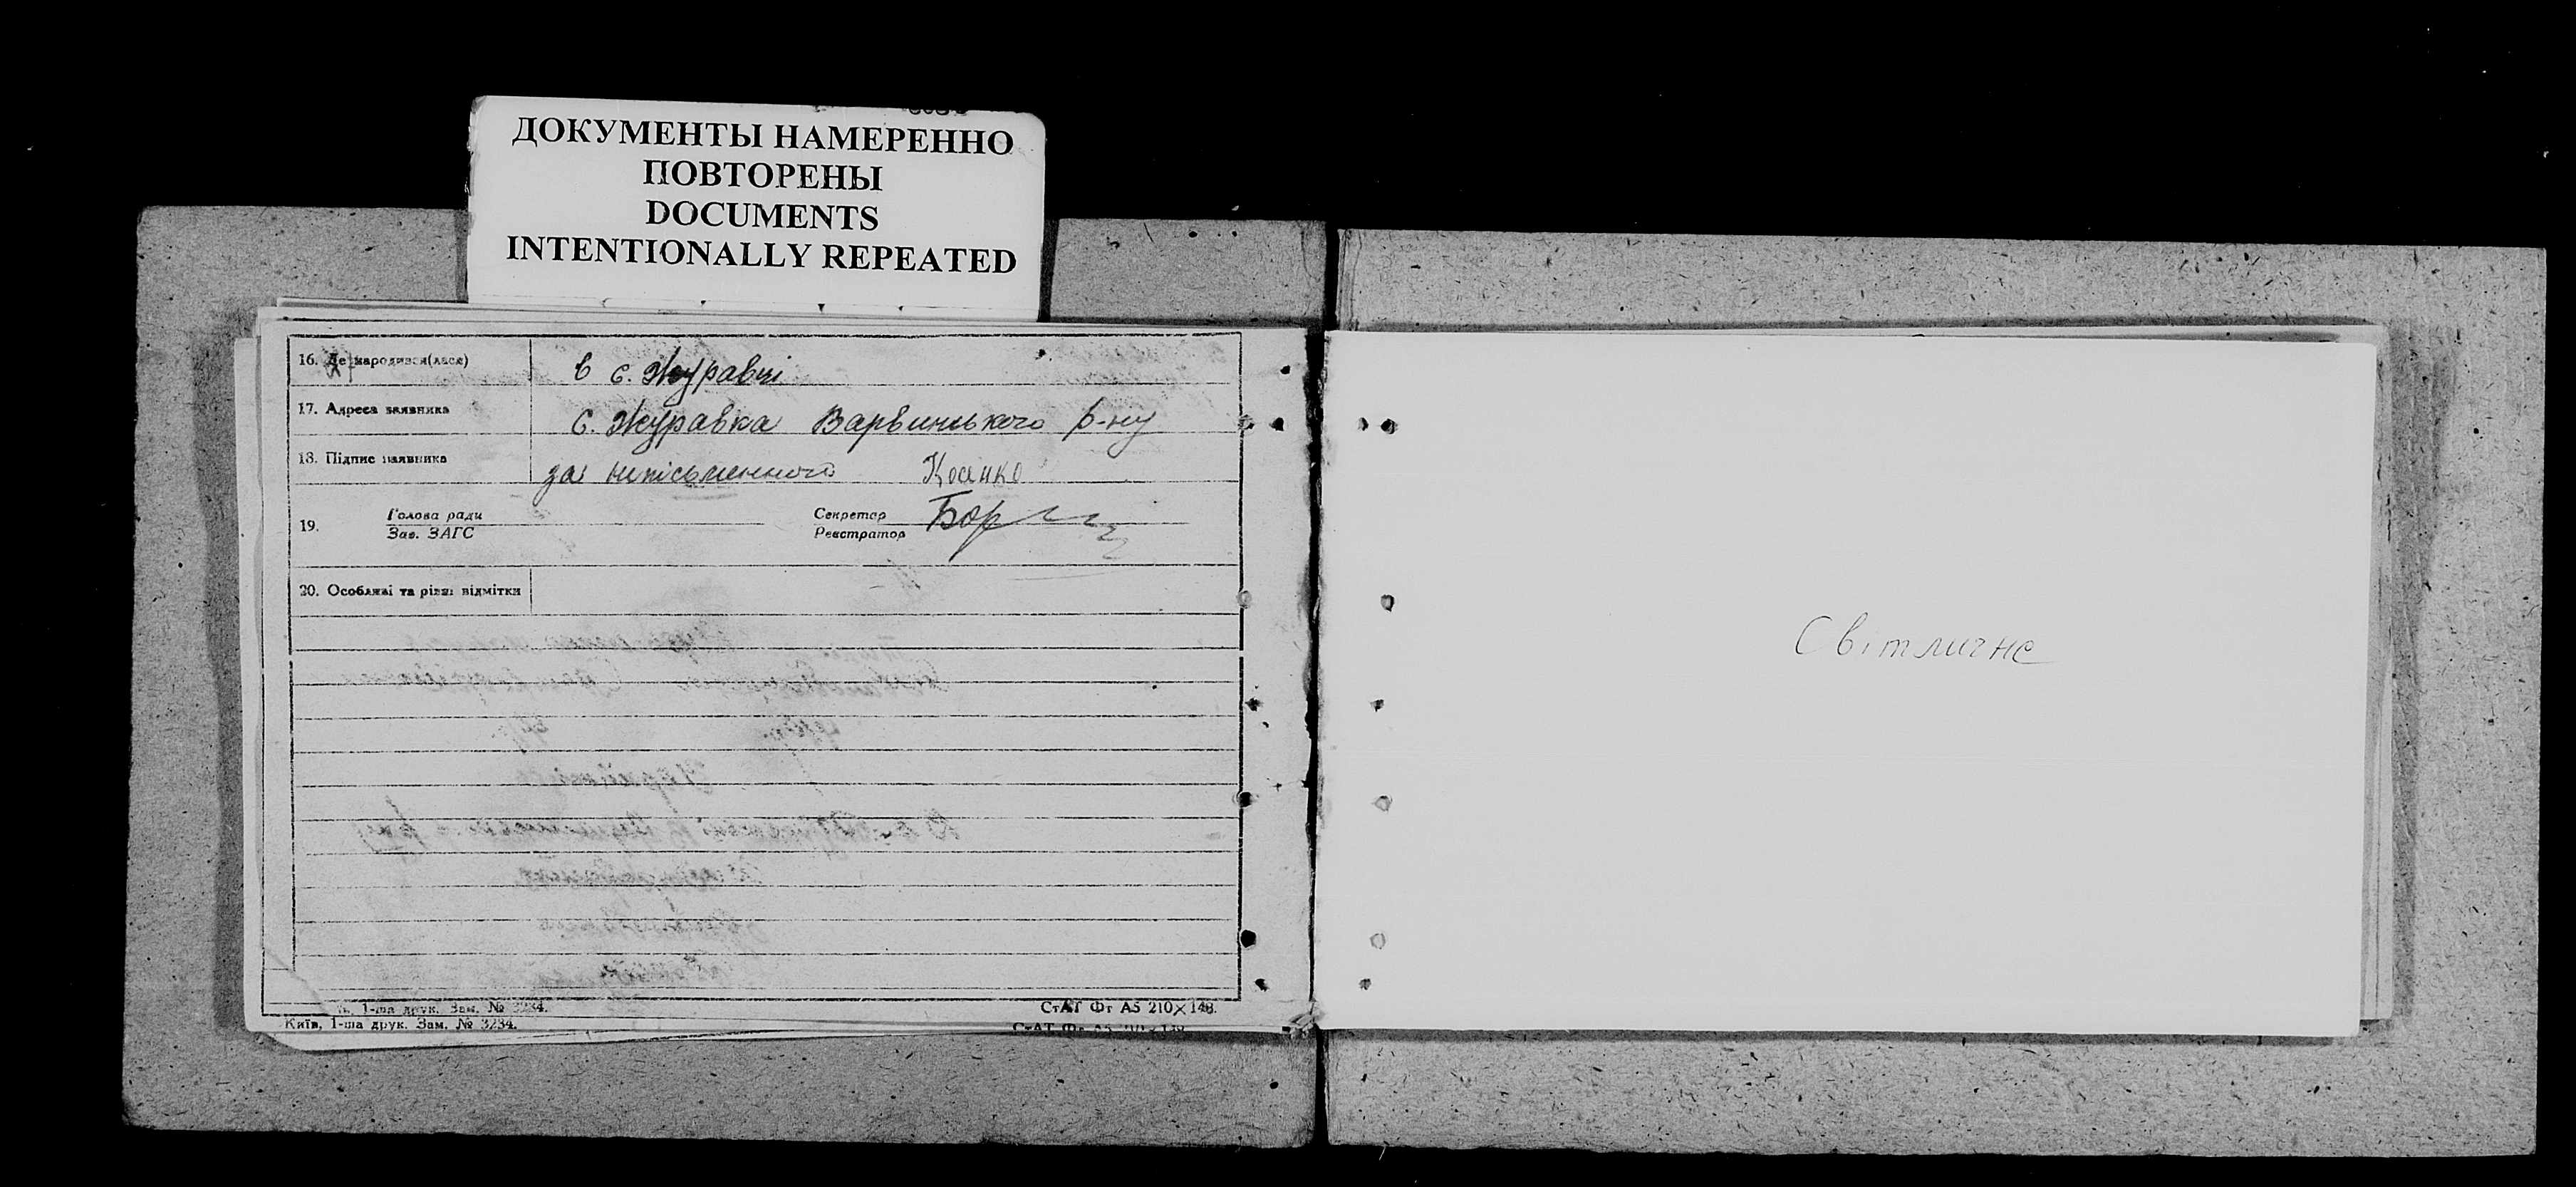 ДОКУМЕНТЫ НАМЕРЕННО
ПОВТОРЕНЫ
DOCUMENTS
INTENTIONALLY REPEATED
16. Де народився(лася) в с. Журавці
17. Адреса заявника с. Журавка Варвинського р-ну
18. Підпис заявника за неписьменного Косенко
19. Голова ради Секретар Бор
Зав. ЗАГС Реєстратор
20. Особливі та різні відмітки
1-ша друк. Зам. № 3234. СтАТ Фт А5 210×148.
Київ, 1-ша друк. Зам. № 3234. СтАТ Фт А5 210×148
Світличне